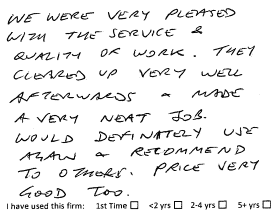 WE WERE VERY PLEASED
WITH THE SERVICE &
QUALITY OF WORK. THEY
CLEARED UP VERY WELL
AFTERWARDS & MADE
A VERY NEAT JOB.
WOULD DEFINATELY USE
AGAIN & RECOMMEND
TO OTHERS. PRICE VERY
GOOD TOO.
I have used this firm: 1st Time □ <2 yrs □ 2-4 yrs □ 5+ yrs □